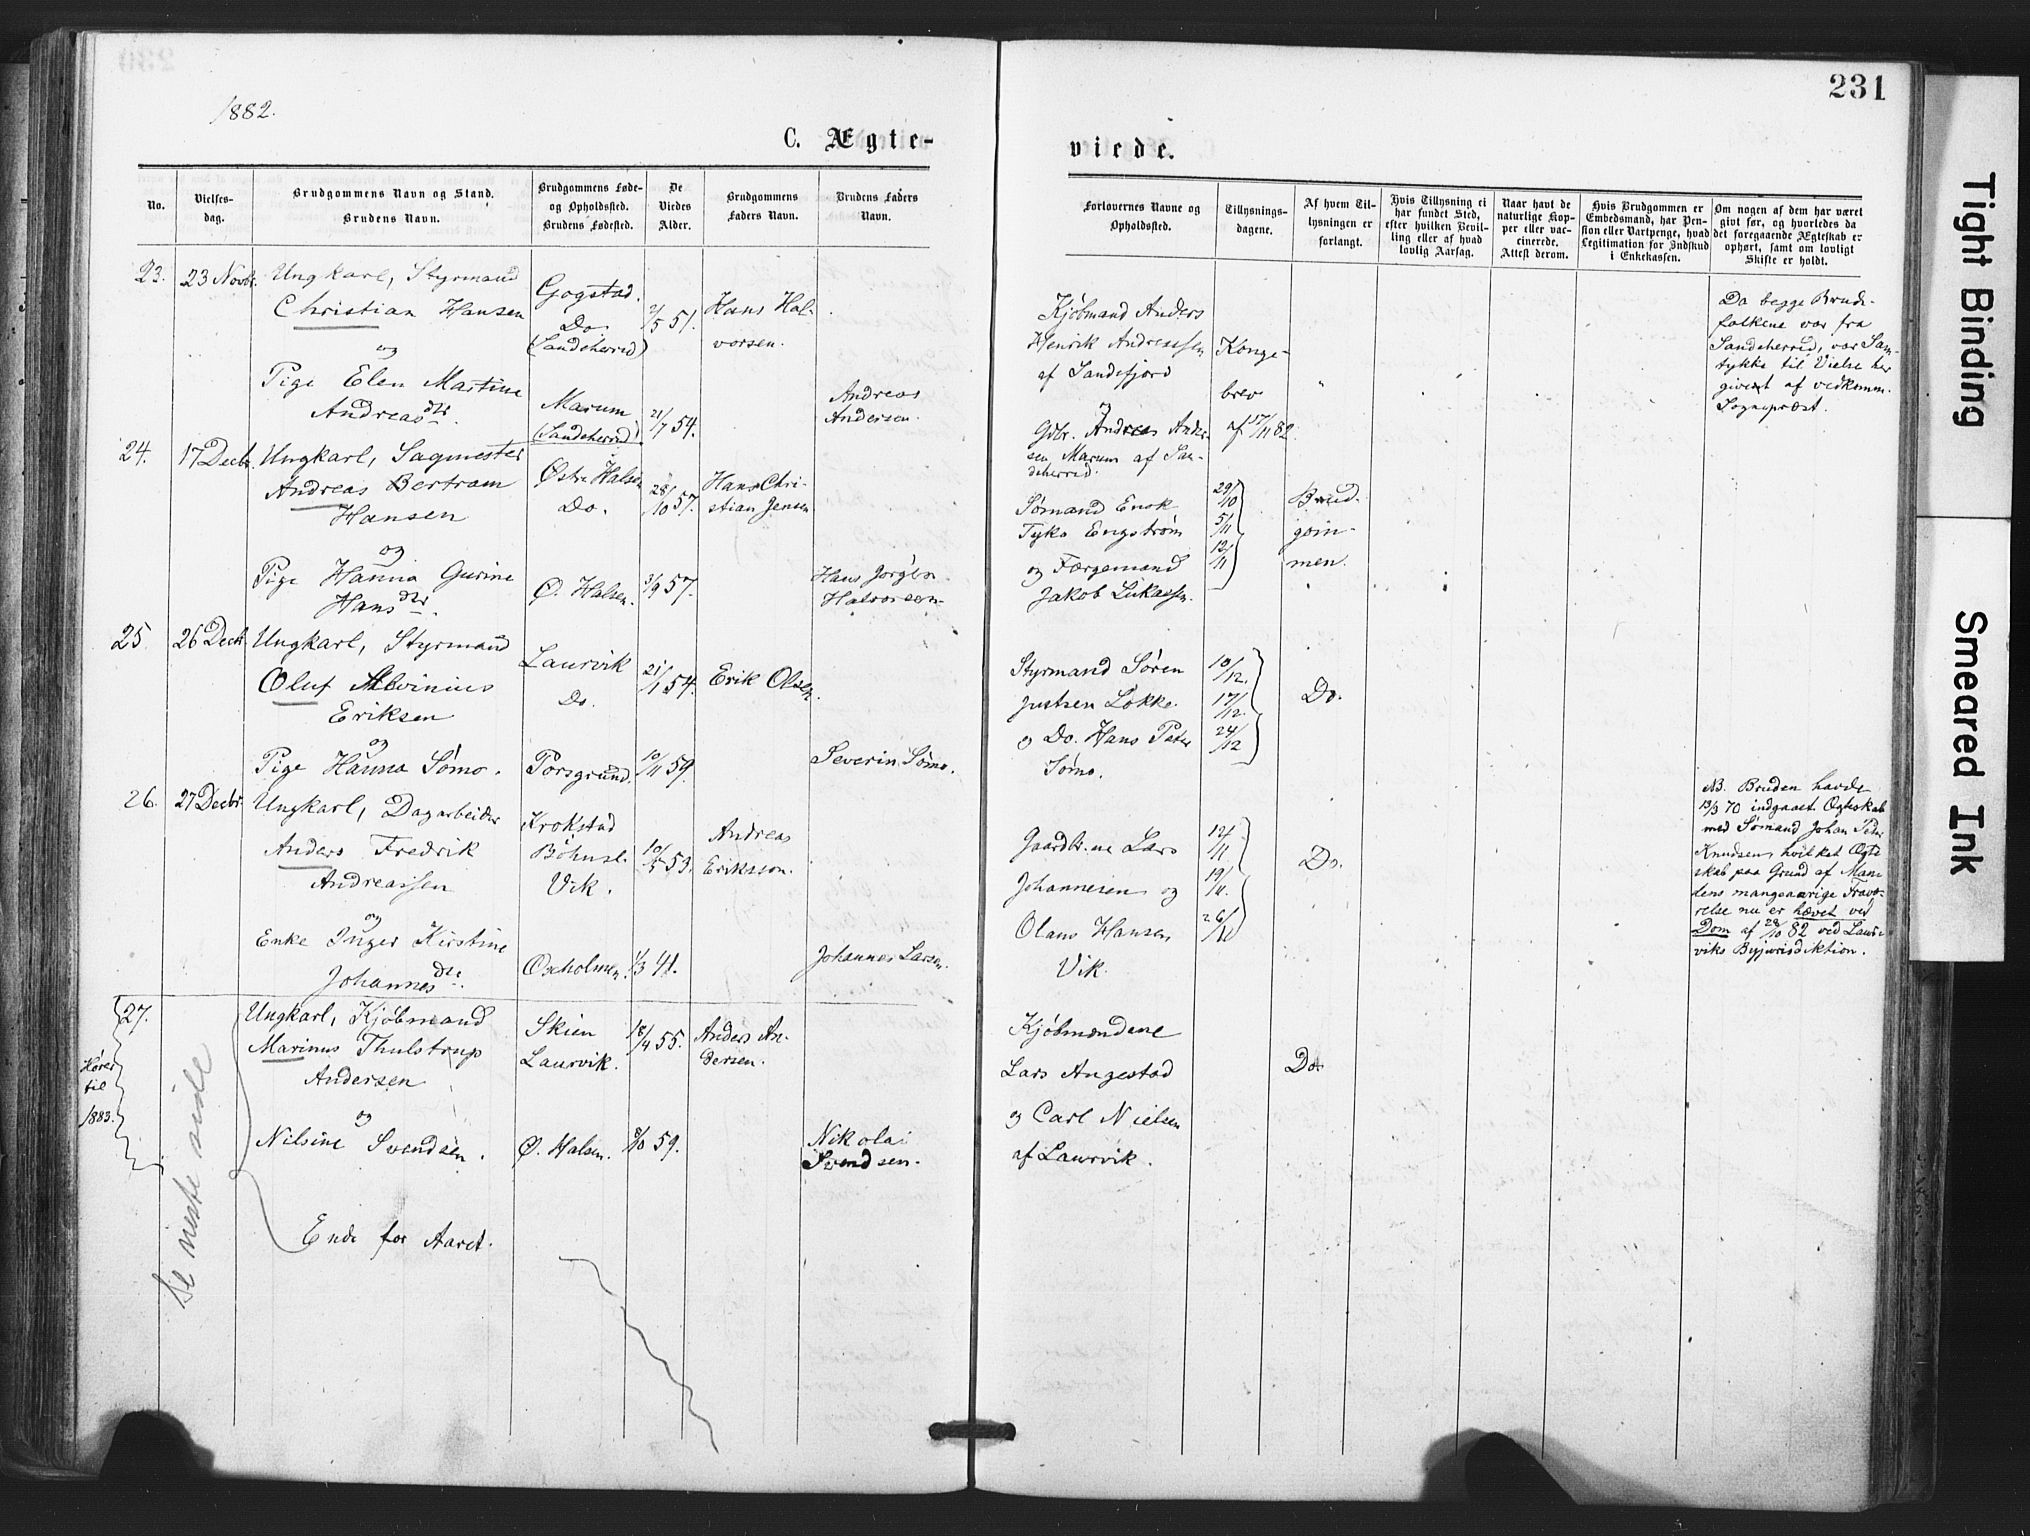 231
1882.
C. Ægte-
viede.
No.
Vielses-
dag.
Brudgommens Navn og Stand.
Brudens Navn.
Brudgommens Føde-
og Opholdssted.
Brudens Fødested.
De
Viedes
Alder.
Brudgommens
Faders Navn.
Brudens Faders
Navn.
Forlovernes Navne og
Opholdssted.
Tillysnings-
dagene.
Af hvem Til-
lysningen er
forlangt.
Hvis Tillysning ei
har fundet Sted,
efter hvilken Bevil-
ling eller af hvad
lovlig Aarsag.
Naar havt de
naturlige Kop-
per eller vac-
cinerede.
Attest derom.
Hvis Brudgommen er
Embedsmand, har Pen-
sion eller Vartpenge, hvad
Legitimation for Indskud
i Enkekassen.
Om nogen af dem har været
gift før, og hvorledes da
det foregaaende Ægteskab er
ophørt, samt om lovligt
Skifte er holdt.
23.
23 Novbr.
Ungkarl, Styrmand
Christian Hansen
og
Pige Elen Martine
Andreasdtr.
Gogstad.
Do.
(Sandeherred)
Marum
(Sandeherred)
2/5 51.
21/7 54.
Hans Hal-
vorsen.
Andreas
Andersen.
Kjøbmand Anders
Henrik Andreassen
af Sandefjord
og
Gdbr. Andreas Ander-
sen Marum af San-
deherred.
Konge-
brev
af 17/11 82.
"
Da begge Brude-
folkene var fra
Sandeherred, var Sam-
tykke til Vielse her
givet af vedkomm.
Sognepræst.
24.
17 Decbr.
Ungkarl, Sagmester
Andreas Bertram
Hansen
og
Pige Hanna Gurine
Hansdtr.
Østre Halsen
Do.
Ø. Halsen.
28/10 57.
3/9 57.
Hans Chri-
stian Jensen
Hans Jørgen
Halvorsen
Sømand Enok
Tyko Engstrøm
og Færgemand
Jakob Lukassen.
29/10
5/11
12/11
Brud-
gom-
men.
25.
26 Decbr.
Ungkarl, Styrmand
Oluf Alvinius
Eriksen
og
Pige Hanna Sømo.
Laurvik
Do.
Porsgrund.
21/1 54.
10/11 59.
Erik Olsen.
Severin Sømo.
Styrmand Søren
Justsen Løkke
og Do. Hans Peter
Sømo.
10/12.
17/12.
24/12
Do.
26.
27 Decbr.
Ungkarl, Dagarbeider
Anders Fredrik
Andreassen
og
Enke Inger Kirstine
Johannesdtr.
Krokstad
Bohusl.
Vik.
Oxholmen.
10/5 53.
1/3 41.
Andreas
Eriksson.
Johannes Larsen.
Gaardbr.ne Lars
Johannesen og
Olaus Hansen
Vik.
12/11
19/11.
26/11
Do.
NB. Bruden havde
13/3 70 indgaaet Ægteskab
med Sømand Johan Peder
Knudsen, hvilket Ægte
skab paa Grund af Man-
dens mangeaarige Fravæ-
relse nu er hævet ved
Dom af 28/10 82 ved Laur-
viks Byjurisdiktion.
27.
Hører
til
1883.
Se neste side
Ungkarl, Kjøbmand
Marinus Thulstrup
Andersen
og
Nilsine Svendsen.
Skien
Laurvik.
Ø. Halsen.
18/4 55.
8/10 59.
Anders An-
dersen.
Nikolai
Svendsen.
Kjøbmændene
Lars Angestad
og Carl Nielsen
af Laurvik.
Do.
Ende for Aaret.
Tight Binding
Smeared Ink